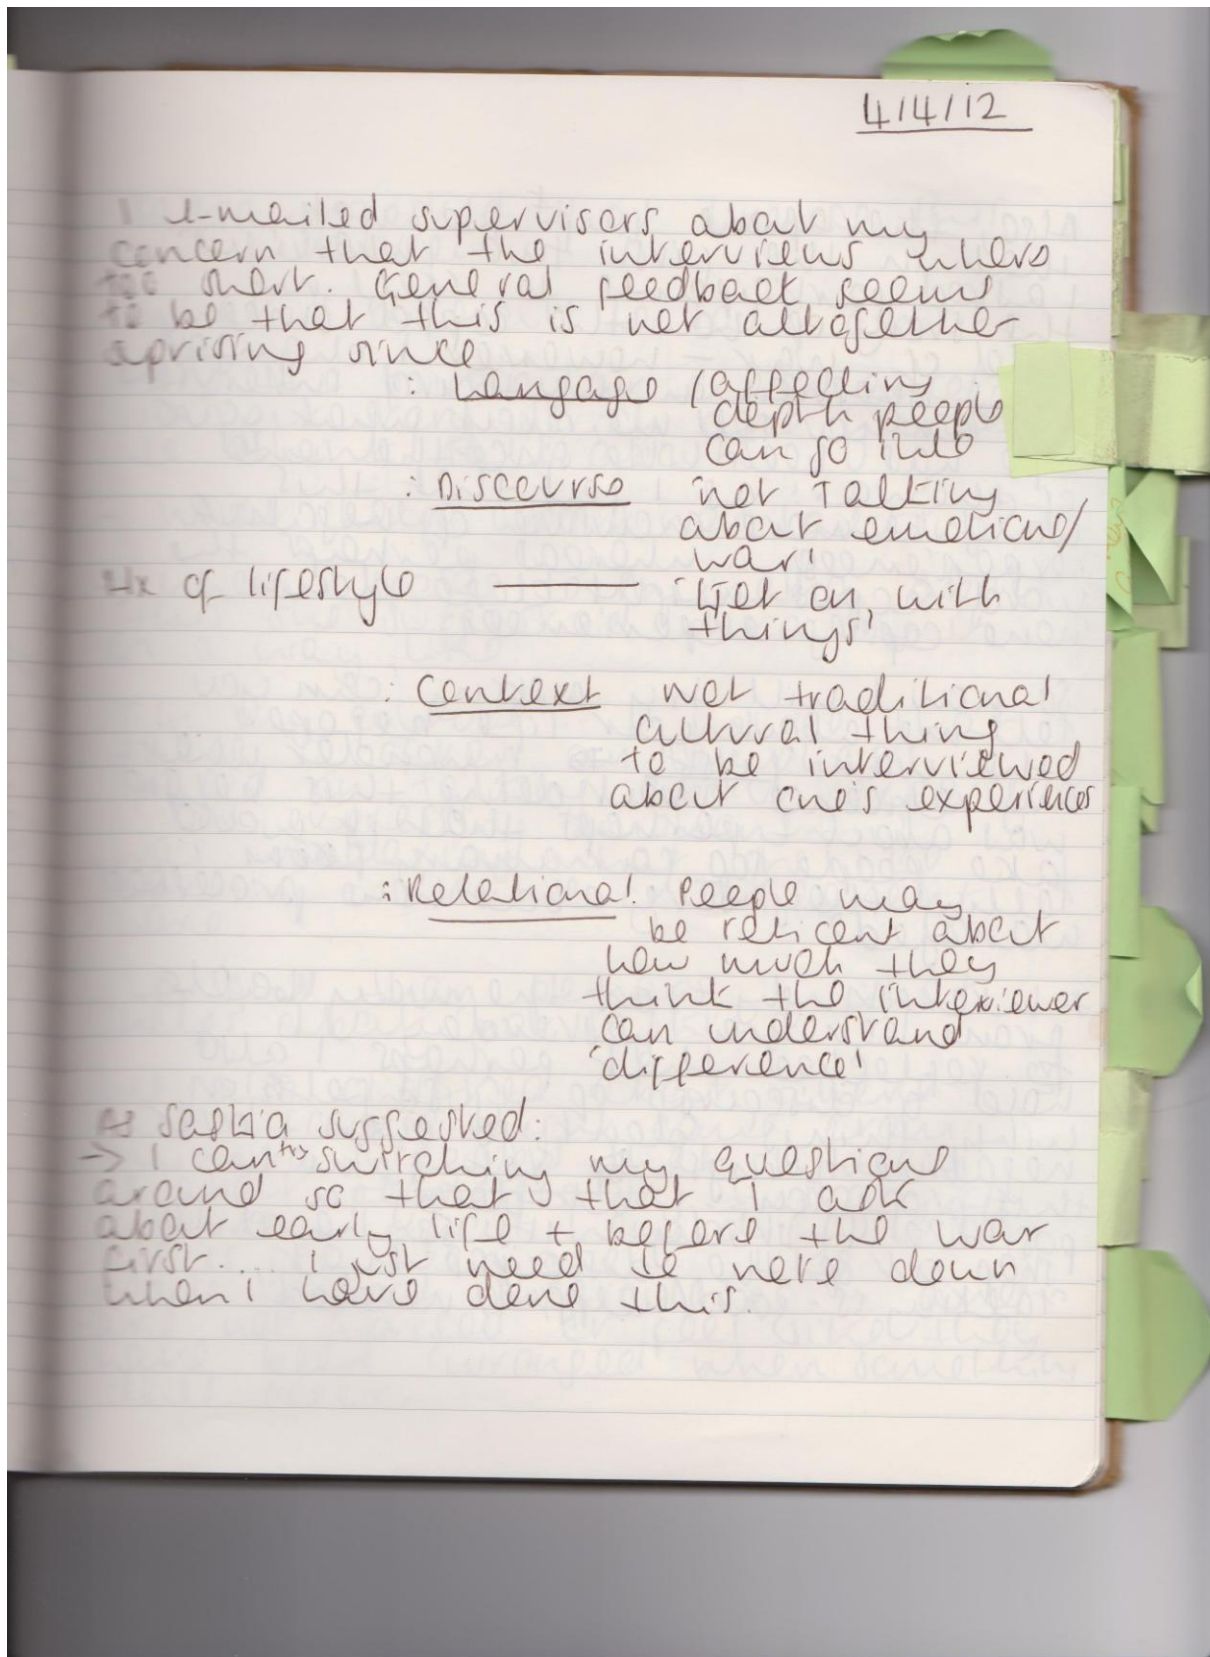 4/4/12
I e-mailed supervisors about my
concern that the interviews where
too short. General feedback seems
to be that this is not altogether
suprising since
: Langage / affecting
depth people
can go into
: Discourse 'not Talking
about emotions/
war'
Hx of lifestyle — 'Get on with
things'
: Context Not traditional
cultural thing
to be interviewed
about one's experiences
: Relational. People may
be reticent about
how much they
think the interviewer
can understand
'difference'
As Saskia suggested:
→ I can try switching my questions
around so that that I ask
about early life + before the war
first.... I just need to note down
when I have done this.